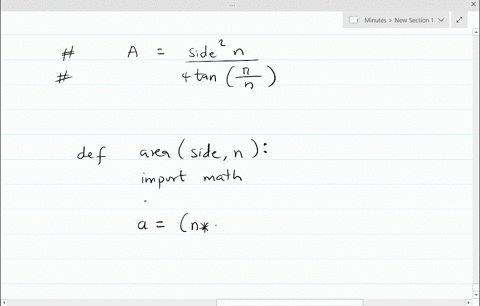 Minutes > New Section 1
# A = side² n
# 4 tan (π/n)
def area (side, n):
import math
a = (n*